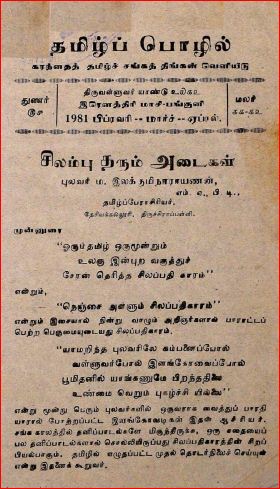 தமிழ்ப் பொழில்
கரந்தைத் தமிழ்ச் சங்கத் திங்கள் வெளியீடு
துணர்
திருவள்ளுவர் யாண்டு
மலர்
இரௌத்திரி மாசி-பங்குனி
1981 பிப்ரவரி -- மார்ச் -- ஏப்ரல்.
சிலம்பு தரும் அடைகள்
புலவர் ம. இலக்குமிநாராயணன்,
எம். ஏ., பி. டி.,
தமிழ்ப்பேராசிரியர்,
தேசியக்கல்லூரி, திருச்சிராப்பள்ளி.
முன்னுரை
"ஒருமுத்தமிழ் ஒருமூன்றும்
உலகு இன்புற வகுத்துச்
சேரன் தெரித்த சிலப்பதிகாரம்"
என்றும்,
"நெஞ்சை அள்ளும் சிலப்பதிகாரம்"
என்றும் இசையால் நின்று வாழும் அறிஞர்களால் பாராட்டப்
பெற்ற பெருமையுடையது சிலப்பதிகாரம்.
"யாமறிந்த புலவரிலே கம்பனைப்போல்
வள்ளுவர்போல் இளங்கோவைப்போல்
பூமிதனில் யாங்கணுமே பிறந்ததிலை
உண்மை வெறும் புகழ்ச்சி யில்லை"
என்று மூன்று பெரும் புலவர்களில் ஒருவராக வைத்துப் பாரதி
யாரால் போற்றப்பட்ட இளங்கோவடிகள் இதன் ஆசிரியர்.
சங்க காலத்தில் தனிப்பாடல்களே மிகுந்திருக்க, ஒரு கதையைப்
பல தனிப்பாடல்களால் சொல்லியிருப்பது சிலப்பதிகாரத்தின் சிறப்
பியல்பாகும். தமிழில் எழுதப்பட்ட முதல் தொடர்நிலைச் செய்யுள்
என்று இதனைக் கூறுவர்.